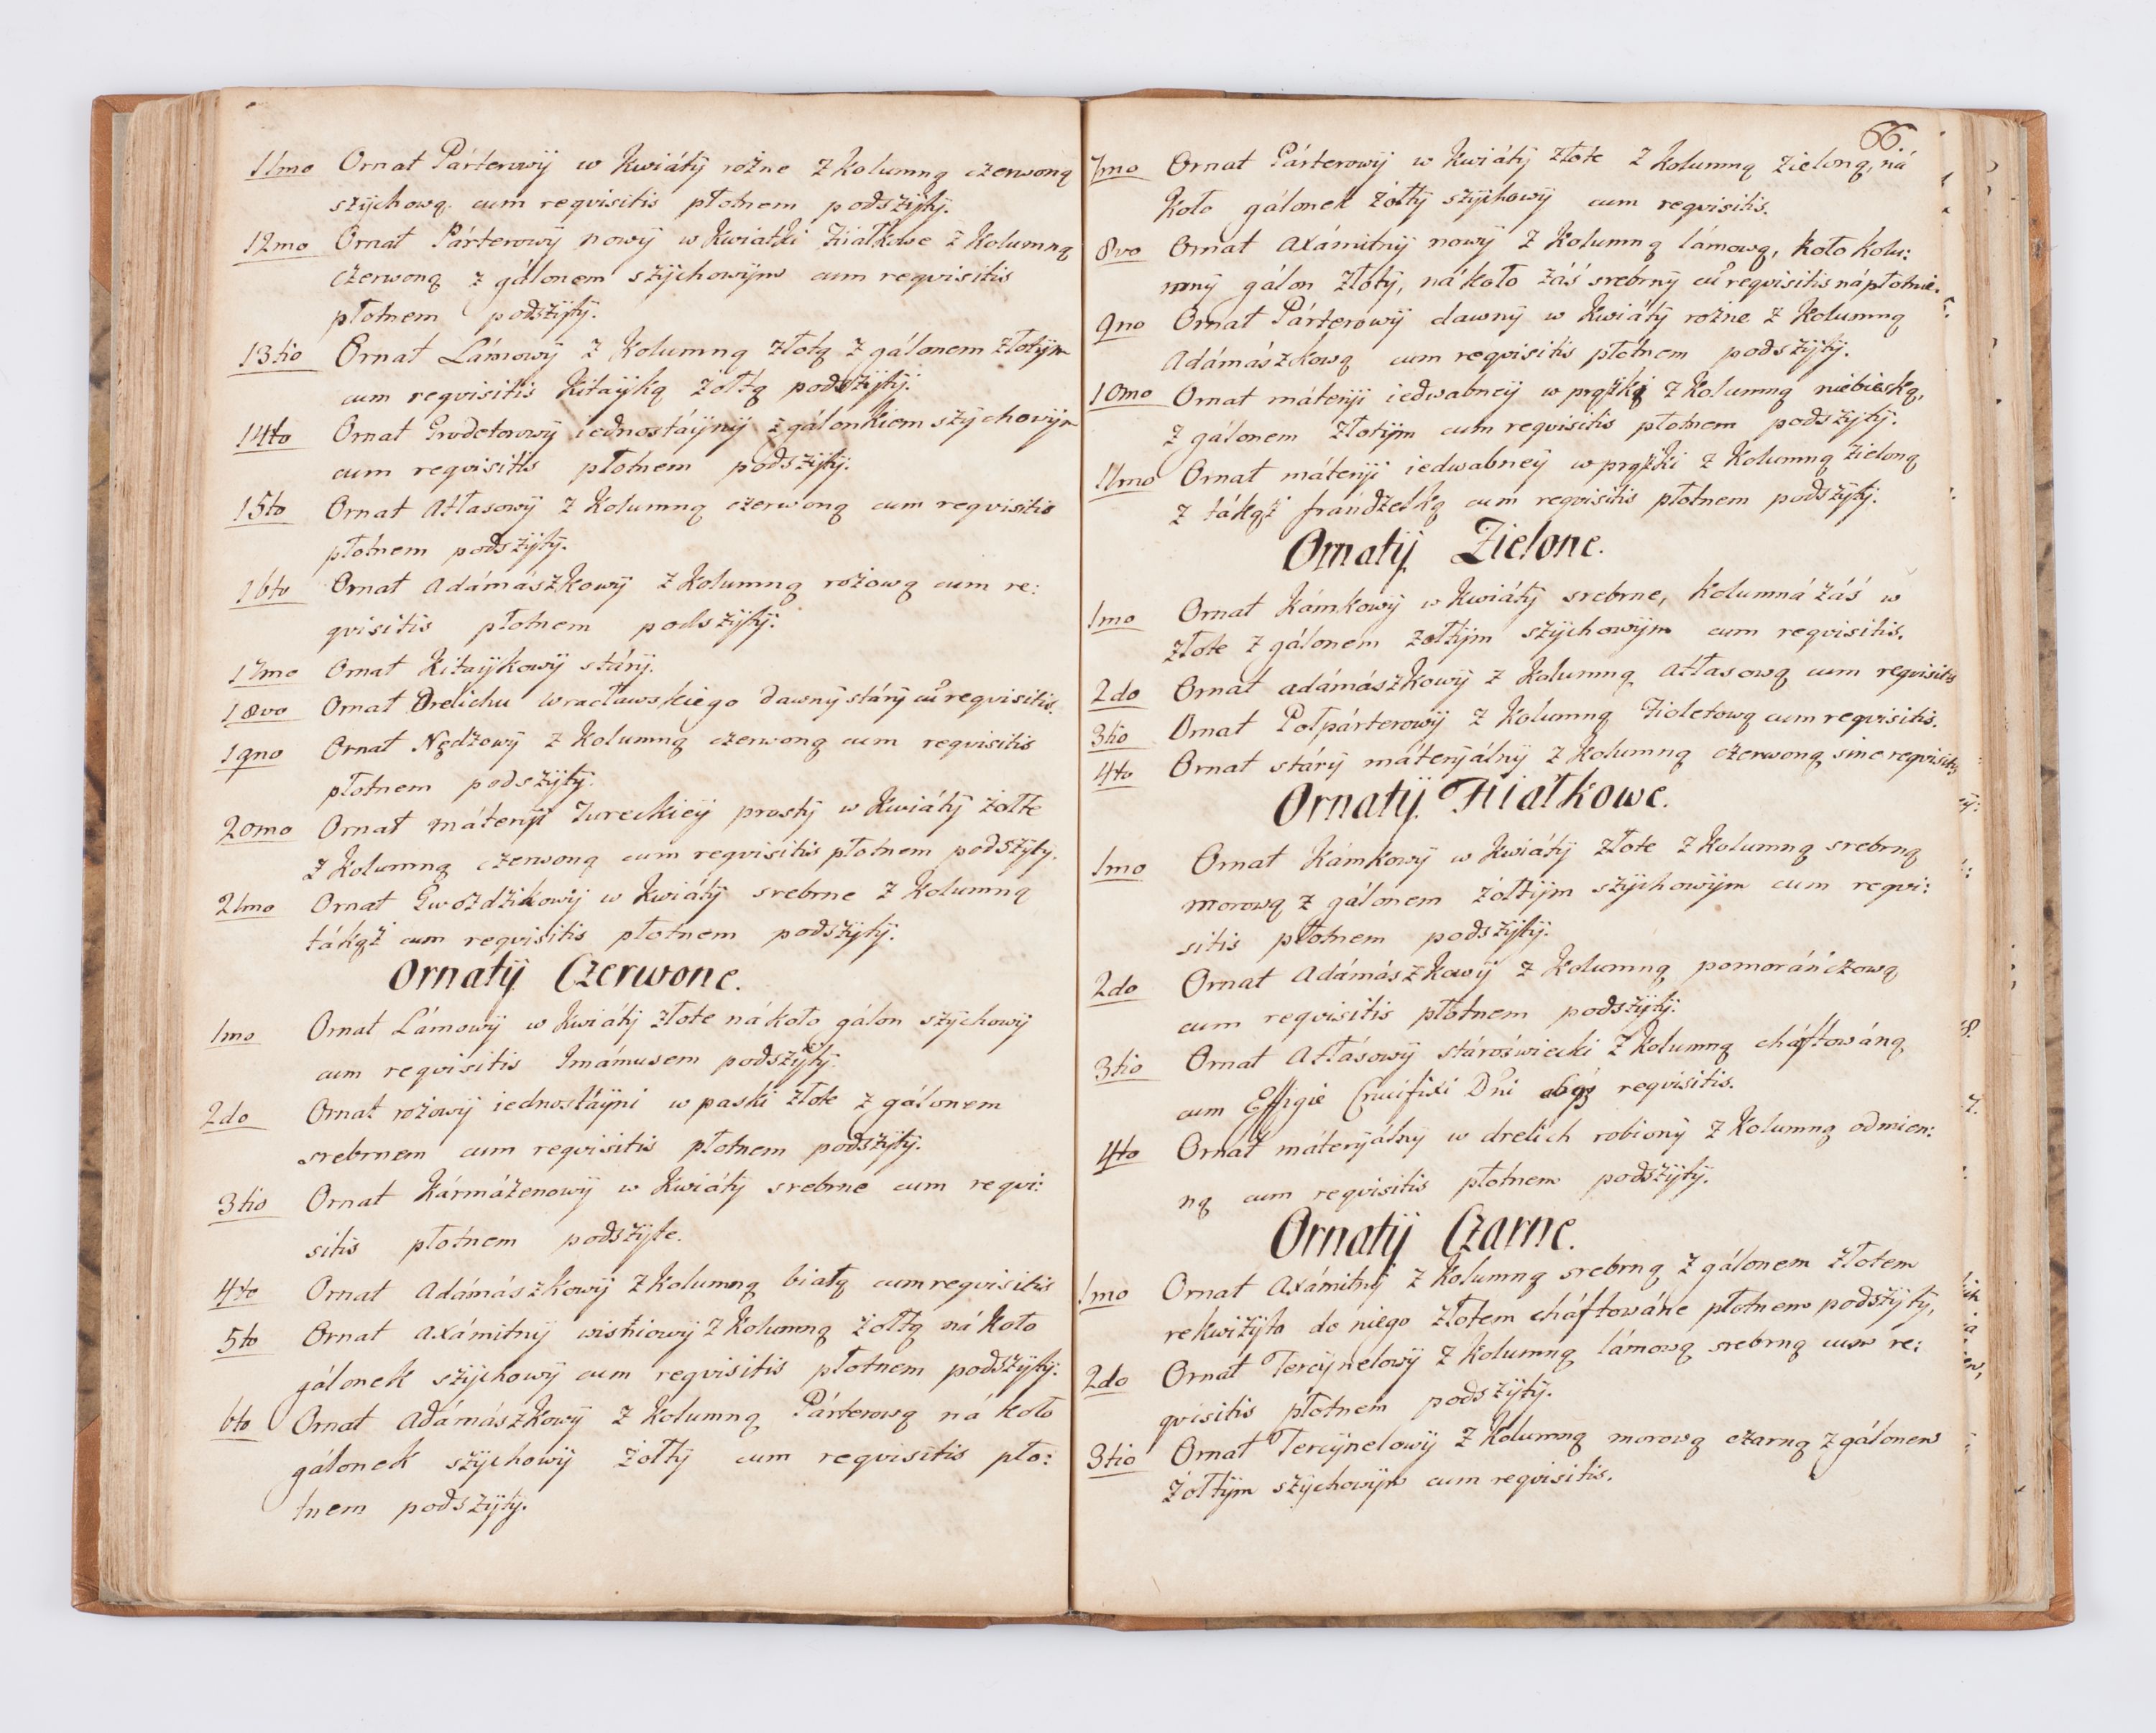 11mo Ornat Párterowÿ w Kwiátÿ rożne z Kolumną czerwoną
szÿchową cum reqvisitis płotnem podszÿtÿ.
12mo Ornat Párterowÿ nowÿ w Kwiatki Fiałkowe z Kolumną
czerwoną z gálonem szÿchowÿm cum reqvisitis
płotnem podszÿtÿ.
13tio Ornat Lámowÿ z Kolumną złotą z gálonem złotÿm
cum reqvisitis Kitaÿką żołtą podszÿtÿ.
14to Ornat Grodetorowÿ iednostáÿnÿ z gálonkiem szÿchowÿm
cum reqvisitis płotnem podszÿtÿ.
15to Ornat Atłasowÿ z Kolumną czerwoną cum reqvisitis
płotnem podszÿtÿ.
16to Ornat Adámászkowÿ z Kolumną rożową cum re:
qvisitis płotnem podszÿtÿ.
17mo Ornat Kitaÿkowÿ stárÿ.
18vo Ornat Drelichu wracławskiego dawnÿ stárÿ cũ reqvisitis.
19no Ornat Nędzowÿ z Kolumną czerwoną cum reqvisitis
płotnem podszÿtÿ.
20mo Ornat máterÿi Tureckieÿ prostÿ w Kwiátÿ żołte
z Kolumną czerwoną cum reqvisitis płotnem podszÿtÿ.
21mo Ornat Gwozdzikowÿ w Kwiátÿ srebrne z Kolumną
tákąż cum reqvisitis płotnem podszÿtÿ.
Ornatÿ Czerwone.
1mo Ornat Lámowÿ w Kwiátÿ złote nákoło gálon szÿchowÿ
cum reqvisitis Imámusem podszÿtÿ.
2do Ornat rożowÿ iednostáÿni w paski złote z gálonem
srebrnem cum reqvisitis płotnem podszÿtÿ.
3tio Ornat Kármáżenowÿ w Kwiátÿ srebrne cum reqvi:
sitis płotnem podszÿte.
4to Ornat Adámászkowÿ z Kolumną białą cum reqvisitis
5to Ornat Axámitnÿ wisniowÿ z Kolumną żołtą ná koło
gálonek szÿchowÿ cum reqvisitis płotnem podszÿtÿ.
6to Ornat Adámászkowÿ z Kolumną Párterową ná koło
gálonek szÿchowÿ żołtÿ cum reqvisitis pło:
tnem podszÿtÿ.
66.
7mo Ornat Párterowÿ w Kwiátÿ złote z Kolumną zieloną, ná
koło gálonek żołtÿ szÿchowÿ cum reqvisitis.
8vo Ornat Axámitnÿ nowÿ z Kolumną lámową, koło kolu:
mnÿ gálon złotÿ, nákoło záś srebrnÿ cũ reqvisitis ná płotnie.
9no Ornat Párterowÿ dawnÿ w Kwiátÿ rożne z Kolumną
Adámászkową cum reqvisitis płotnem podszÿtÿ.
10mo Ornat máterÿi iedwabneÿ w prążki z Kolumną niebieską,
z gálonem złotÿm cum reqvisitis płotnem podszÿtÿ.
11mo Ornat máterÿi iedwabneÿ w prążki z Kolumną zieloną
z tákąż frándzelką cum reqvisitis płotnem podszÿtÿ.
Ornatÿ Zielone.
1mo Ornat Kámkowÿ w Kwiátÿ srebrne, kolumná záś w
złote z gálonem żołtÿm szÿchowÿm cum reqvisitis.
2do Ornat adámászkowÿ z kolumną atłasową cum reqvisitis
3tio Ornat Połpárterowÿ z Kolumną Fioletową cum reqvisitis.
4to Ornat stárÿ máterÿálnÿ z Kolumną czerwoną sine reqvisitis
Ornatÿ Fiałkowe.
1mo Ornat Kámkowÿ w Kwiátÿ złote z Kolumną srebrną
morową z gálonem żołtÿm szÿchowÿm cum reqvi:
sitis płotnem podszÿtÿ.
2do Ornat Adámászkowÿ z Kolumną pomoráńczową
cum reqvisitis płotnem podszÿtÿ.
3tio Ornat Atłásowÿ stároświecki z Kolumną cháftowáną
cum Effigie Crucifixi Dñi absq reqvisitis.
4to Ornat máterÿálnÿ w drelich robionÿ z Kolumną odmien:
ną cum reqvisitis płotnem podszÿtÿ.
Ornatÿ Czarne.
1mo Ornat Axámitnÿ z Kolumną srebrną z gálonem złotem
rekwizÿta do niego złotem cháftowáne płotnem podszÿtÿ,
2do Ornat Tercÿnelowÿ z Kolumną lámową srebrną cum re:
qvisitis płotnem podszÿtÿ.
3tio Ornat Tercÿnelowÿ z Kolumną morową czarną z gálonem
żołtÿm szÿchowÿm cum reqvisitis.